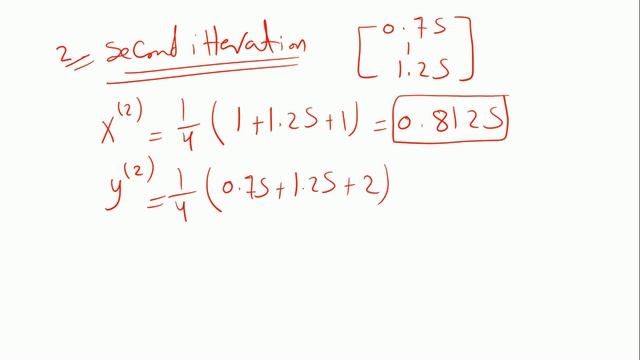 2= second itteration [0.75 1 1.25]
x^(2) = 1/4 (1+1.25+1) = 0.8125
y^(2) = 1/4 (0.75+1.25+2)